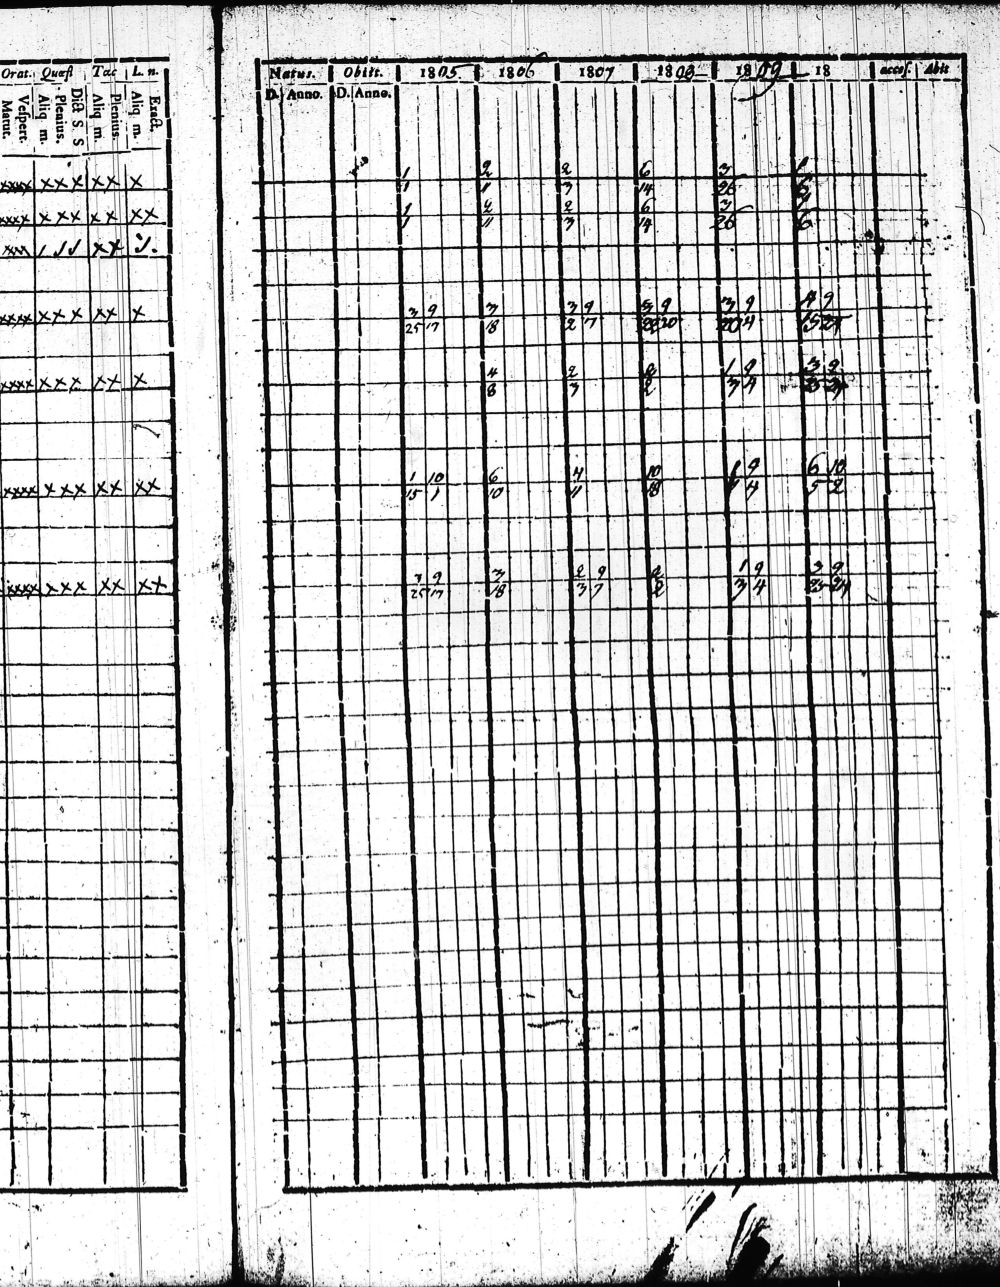 Orat. Quæst Tac L. n.
Matut. Vespert. Aliq m. Plenius. Dict S S Aliq m. Plenius. Aliq m. Exact.
Natus. Obiit. 1805 1806 1807 1808 1809 18 acces. Abit
D. Anno. D. Anno.
xxxx xxx xx x
1 2 2 6 3
1 11 3 14 26 6
xxxx xxx xx xx
1 2 2 6 3
1 11 3 14 26 6
xx
xxxx xxx xx x
3 9 3 3 9 5 9 3 9 4 9
25 17 18 2 7 22 20 20 4 15 24
xxxx xxx xx x
4 2 2 1 9 3 9
8 3 2 3 4
xxxx xxx xx xx
1 10 6 4 10 1 9 6 10
15 1 10 11 18 1 4 5 2
xxxx xxx xx xx
3 9 3 2 9 2 1 9 3 9
25 17 18 3 7 2 3 4 25 24